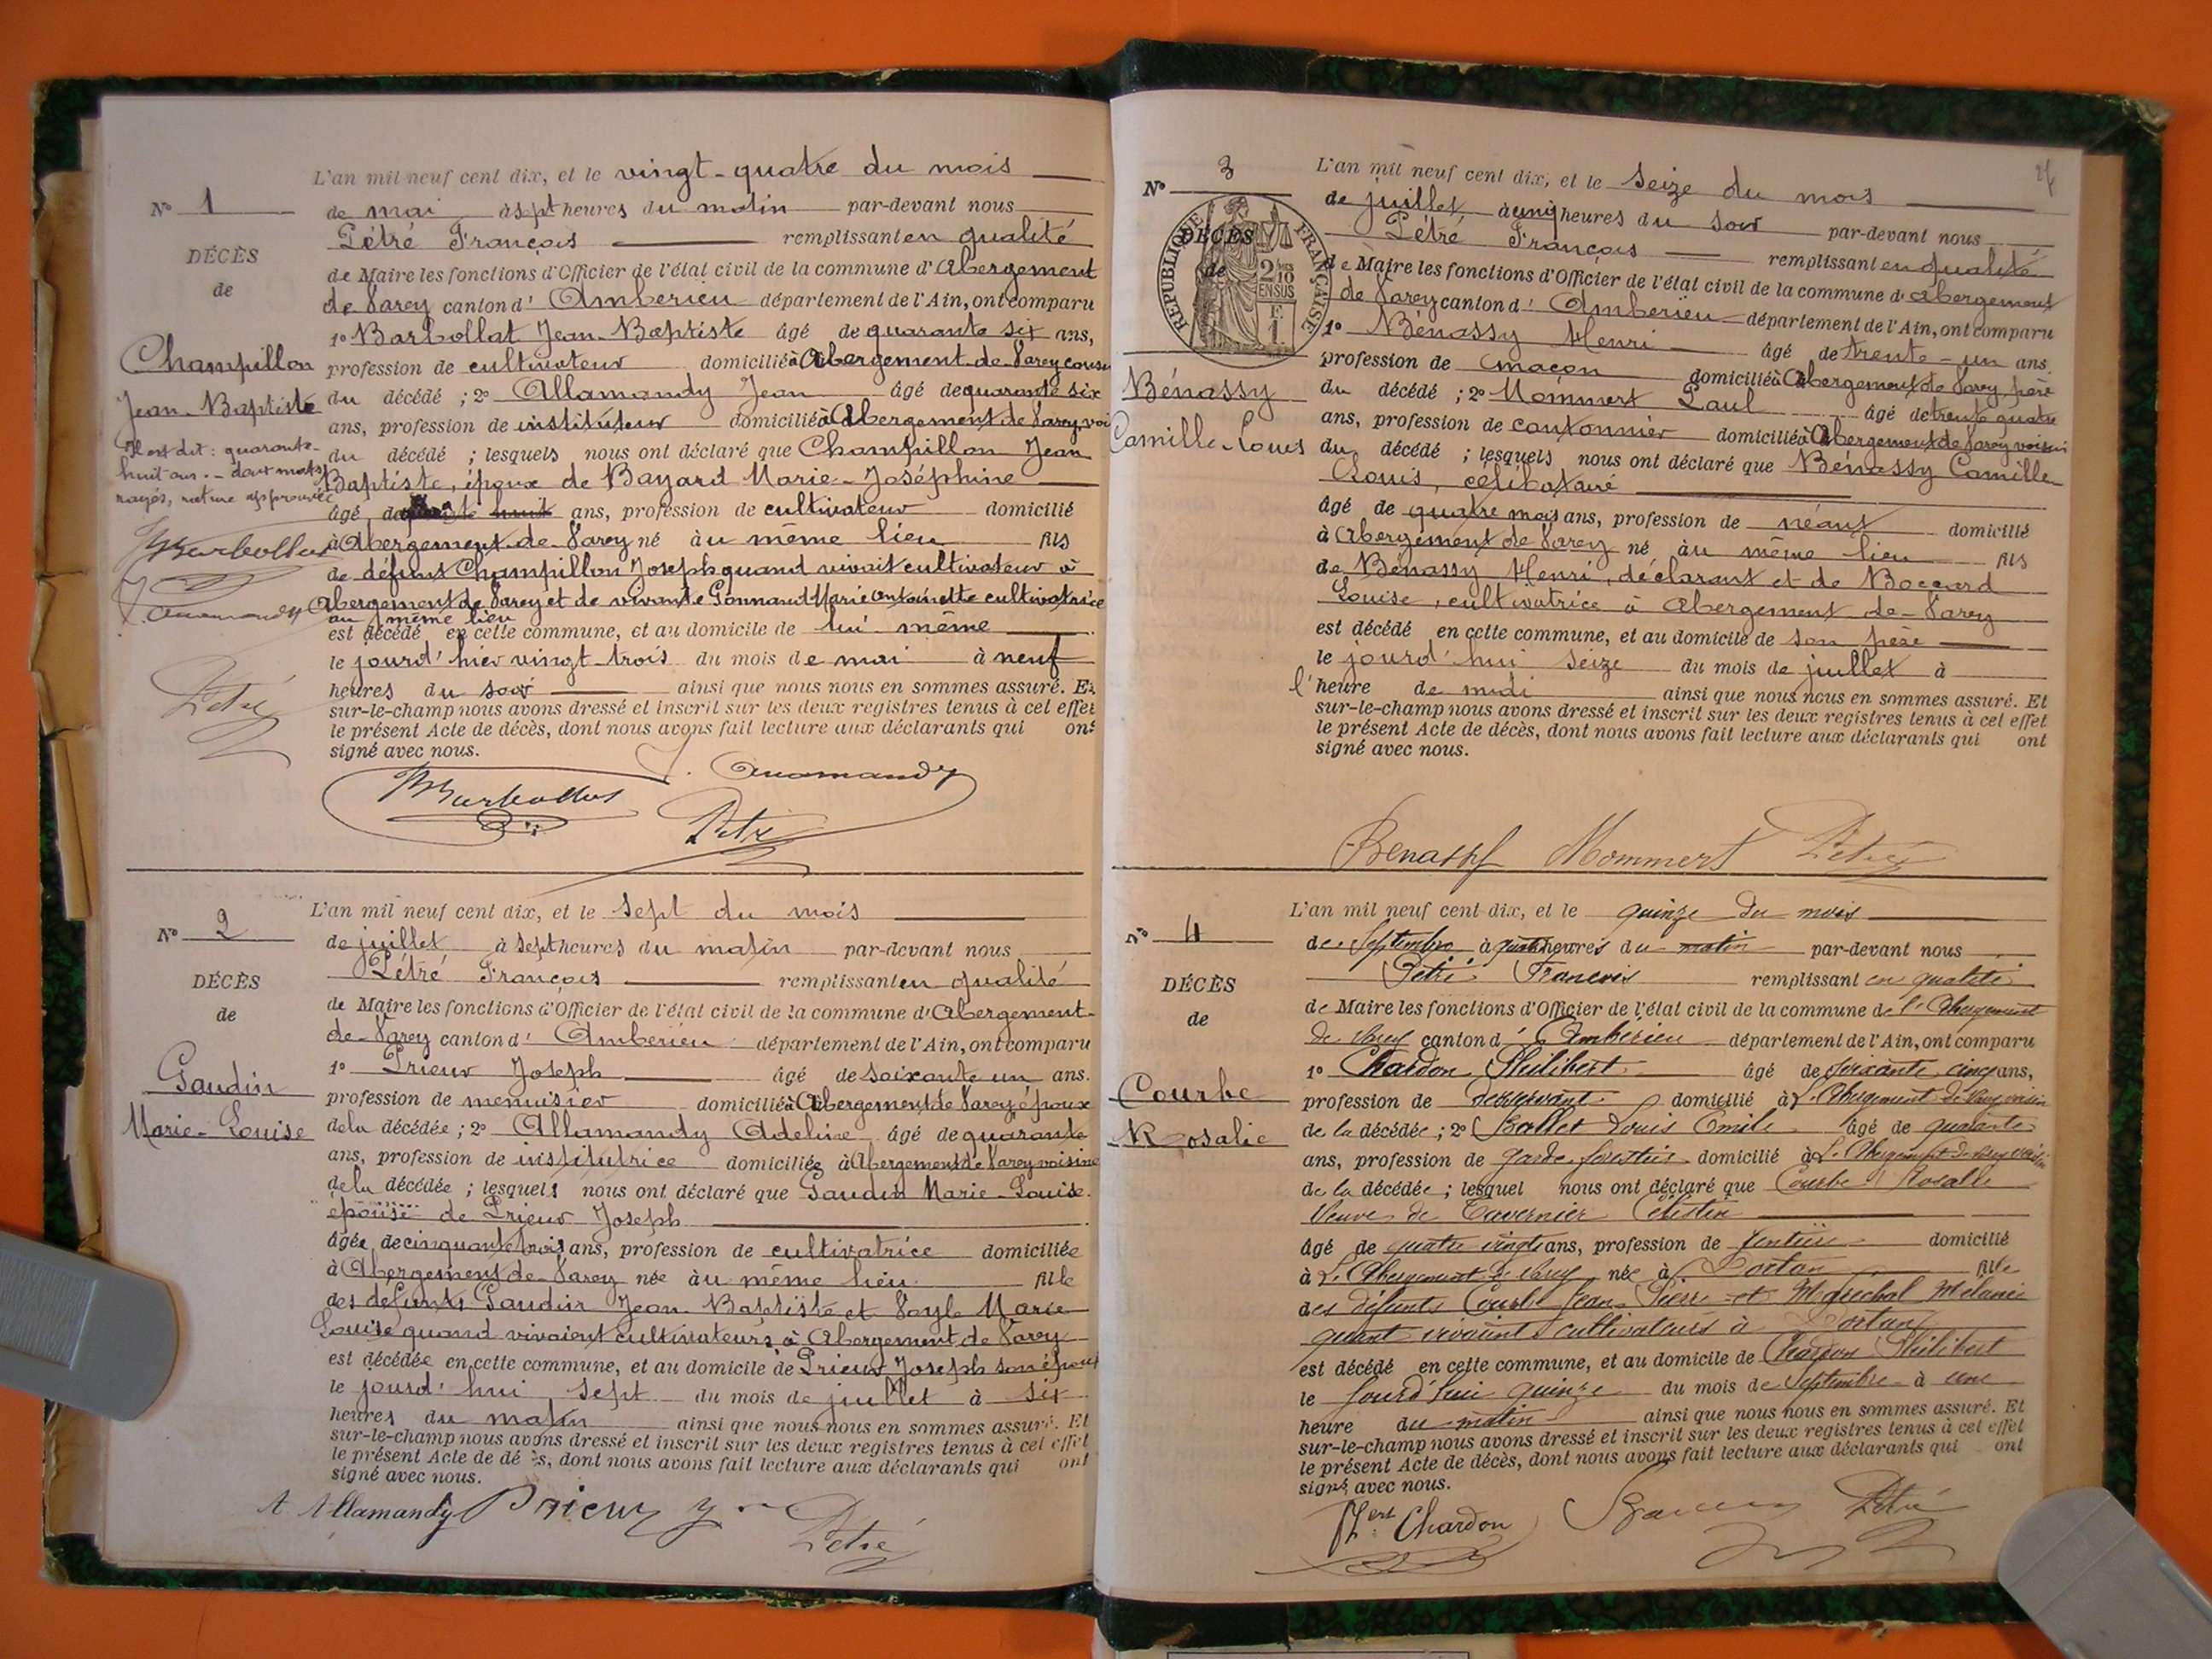 L'an mil neuf cent dix, et le vingt-quatre du mois
N° 1
de mai à sept heures du matin par-devant nous
Pétré François remplissant en qualité
DÉCÈS
de
de Maire les fonctions d'Officier de l'état civil de la commune d'Abergement
de Varey canton d'Ambérieu département de l'Ain, ont comparu
1° Barbollat Jean-Baptiste âgé de quarante six ans,
Champillon
profession de cultivateur domicilié à Abergement-de-Varey cousin
Jean-Baptiste
du décédé ; 2° Allamandy Jean âgé de quarante six
ans, profession de instituteur domicilié à Abergement de Varey, voi
Il est dit : quarante-
huit ans. - deux mots
rayés, rature approuvée
du décédé ; lesquels nous ont déclaré que Champillon Jean
Baptiste, époux de Bayard Marie-Joséphine
âgé de huit ans, profession de cultivateur domicilié
à Abergement-de-Varey né au même lieu fils
de défunt Champillon Joseph quand vivait cultivateur à
Abergement de Varey et de vivante Gonnard Marie Antoinette cultivatrice
au même lieu
est décédé en cette commune, et au domicile de lui-même
le jourd'hier vingt-trois du mois de mai à neuf
heures du soir ainsi que nous nous en sommes assuré. Et
sur-le-champ nous avons dressé et inscrit sur les deux registres tenus à cet effet
le présent Acte de décès, dont nous avons fait lecture aux déclarants qui ont
signé avec nous.
Barbollat
J. Allamandy
Pétré
Barbollat
J. Allamandy
Pétré
L'an mil neuf cent dix, et le sept du mois
N° 2
de juillet à sept heures du matin par-devant nous
Pétré François remplissant en qualité
DÉCÈS
de
de Maire les fonctions d'Officier de l'état civil de la commune d'Abergement-
de-Varey canton d'Ambérieu département de l'Ain, ont comparu
1° Prieur Joseph âgé de soixante un ans.
Gaudin
Marie-Louise
profession de menuisier domicilié à Abergement de Varey époux
de la décédée ; 2° Allamandy Adeline âgé de quarante
ans, profession de institutrice domiciliée à Abergement de Varey voisine
de la décédée ; lesquels nous ont déclaré que Gaudin Marie-Louise
épouse de Prieur Joseph
âgée de cinquante trois ans, profession de cultivatrice domiciliée
à Abergement de-Varey née au même lieu fille
des défunts Gaudin Jean-Baptiste et Vayle Marie
Louise quand vivaient cultivateurs à Abergement de Varey
est décédée en cette commune, et au domicile de Prieur Joseph son époux
le jourd'hui sept du mois de juillet à six
heures du matin ainsi que nous nous en sommes assuré. Et
sur-le-champ nous avons dressé et inscrit sur les deux registres tenus à cet effet
le présent Acte de décès, dont nous avons fait lecture aux déclarants qui ont
signé avec nous.
A Allamandy Prieur Pétré
L'an mil neuf cent dix, et le seize du mois
N° 3
de juillet à cinq heures du soir par-devant nous
Pétré François remplissant en qualité
DÉCÈS
de
RÉPUBLIQUE FRANÇAISE
2/10 EN SUS
F. 1.
de Maire les fonctions d'Officier de l'état civil de la commune d'Abergement
de Varey canton d'Ambérieu département de l'Ain, ont comparu
1° Bénassy Henri âgé de trente-un ans.
Bénassy
Camille-Louis
profession de maçon domicilié à Abergement de Varey père
du décédé ; 2° Mommert Paul âgé de trente quatre
ans, profession de cantonnier domicilié à Abergement de Varey voisin
du décédé ; lesquels nous ont déclaré que Bénassy Camille
Louis, célibataire
âgé de quatre mois ans, profession de néant domicilié
à Abergement de Varey né au même lieu fils
de Bénassy Henri, déclarant et de Boccard
Louise, cultivatrice à Abergement-de-Varey
est décédé en cette commune, et au domicile de son père
le jourd'hui seize du mois de juillet à
l'heure de midi ainsi que nous nous en sommes assuré. Et
sur-le-champ nous avons dressé et inscrit sur les deux registres tenus à cet effet
le présent Acte de décès, dont nous avons fait lecture aux déclarants qui ont
signé avec nous.
Benassy Mommert Pétré
L'an mil neuf cent dix, et le quinze du mois
N° 4
de Septembre à heures du matin par-devant nous
Pétré François remplissant en qualité
DÉCÈS
de
de Maire les fonctions d'Officier de l'état civil de la commune de l'Abergement
de Varey canton d'Ambérieu département de l'Ain, ont comparu
1° Chardon Philibert âgé de soixante cinq ans,
Courbe
Rosalie
profession de domicilié à L'Abergement de Varey voisin
de la décédée ; 2° Ballet Louis Emile âgé de quarante
ans, profession de garde forestier domicilié à L'Abergement de Varey voisin
de la décédée ; lesquel nous ont déclaré que Courbe Rosalie
Veuve de Tavernier Célestin
âgé de quatre vingt ans, profession de rentière domicilié
à L'Abergement de Varey née à Dortan fille
des défunts Courbe Jean Pierre et Maréchal Mélanie
quant vivaient cultivateurs à Dortan
est décédé en cette commune, et au domicile de Chardon Philibert
le jourd'hui quinze du mois de Septembre à une
heure du matin ainsi que nous nous en sommes assuré. Et
sur-le-champ nous avons dressé et inscrit sur les deux registres tenus à cet effet
le présent Acte de décès, dont nous avons fait lecture aux déclarants qui ont
signé avec nous.
Chardon Pétré